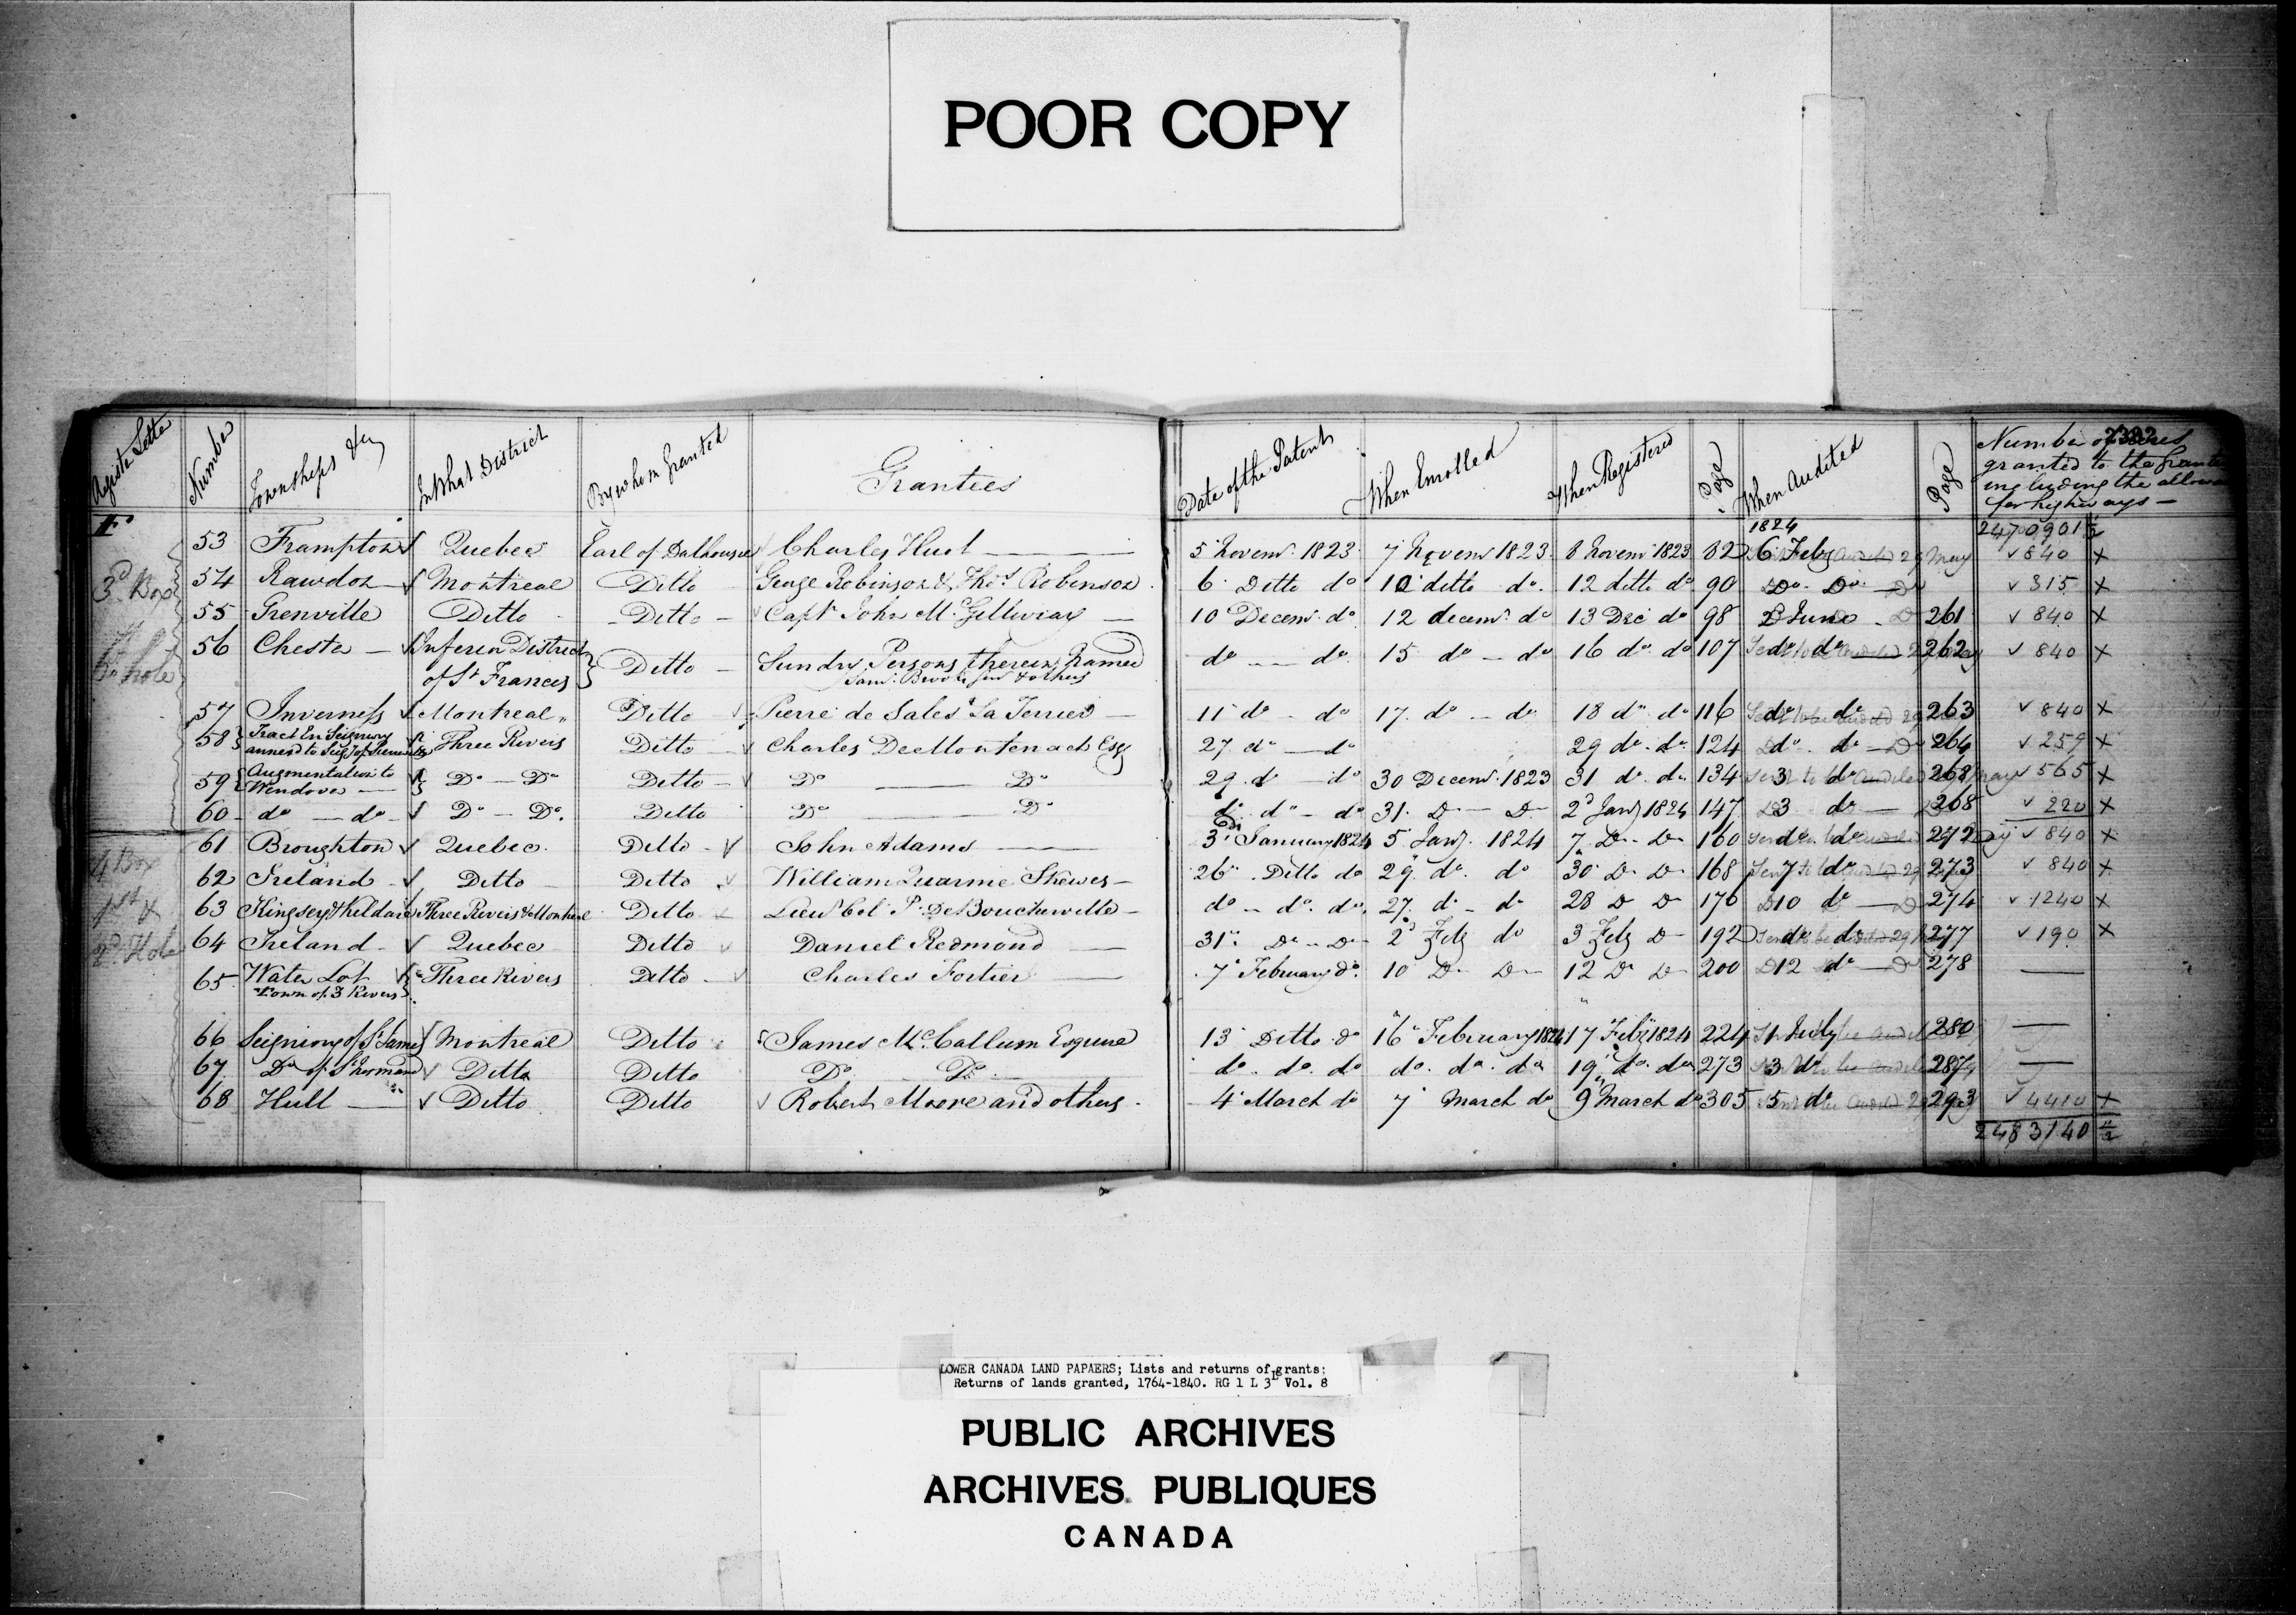 POOR COPY
Register Letter | Number | Townships &c | In What District | By whom Granted | Grantees | Date of the Patent | When Enrolled | When Registered | Page | When Audited | Page | Number of Acres granted to the Grantees including the allowance for highways —
2382
F. | 1824 | 2470901 1/2
53 | Frampton | Quebec | Earl of Dalhousie | Charles Huot | 5 Novemr. 1823 | 7 Novemr 1823 | 8 Novemr 1823 | 82 | 6 Feby | 840 X
3d Box
54 | Rawdon | Montreal | Ditto | George Robinson & Thos. Robinson | 6 Ditto do | 10 ditto do. | 12 ditto do | 90 | Do. Do. | 315 X
55 | Grenville | Ditto | Ditto | Capt. John McGillivray | 10 Decemr. do | 12 decemr. do | 13 Dec do | 98 | 2 June | 261 | 840 X
56 | Chester | Inferior District of St Francis | Ditto | Sundry Persons therein Named | do do | 15 do do | 16 do. do | 107 | do do | 262 | 840 X
Hole
57 | Inverness | Montreal | Ditto | Pierre de Sales La Terriere | 11 do do | 17. do do | 18 do. do | 116 | do do | 263 | 840 X
58 | Tract In Seigniory | Three Rivers | Ditto | Charles De Montenach Esqr | 27. do do | 29 do. do | 124 | do. do | 264 | 259 X
59 | Augmentation to Wendover | Do Do | Ditto | Do Do | 29. do do | 30 Decemr. 1823 | 31 do. do | 134 | 3 do | 268 | 565 X
60 | do do | Do Do. | Ditto | Do Do | do do do | 31. Do Do | 2d Jany 1824 | 147 | 3 do | 268 | 220 X
61 | Broughton | Quebec. | Ditto | John Adams | 3d January 1824 | 5 Jany. 1824 | 7 Do Do | 160 | do. do | 272 | 840 X
4 Box
62 | Ireland | Ditto | Ditto | William Quarme Skewes | 26 Ditto do | 29 do. do | 30 Do Do | 168 | 7 do | 273 | 840 X
1st &
63 | Kingsey & Kildare | Three Rivers & Montreal | Ditto | Lieut Col. P. De Boucherville | do do. do. | 27. do do | 28 Do Do | 176 | 10 do | 274 | 1240 X
2d Hole
64 | Ireland | Quebec | Ditto | Daniel Redmond | 31. Do Do | 2d Feby do | 3 Feby Do | 192 | do do | 277 | 190 X
65. | Water Lot Town of 3 Rivers | Three Rivers | Ditto | Charles Fortier | 7 February do. | 10 Do Do | 12 Do Do | 200 | 12 do | 278 | —
66 | Seigniory of St James | Montreal | Ditto | James McCallum Esquire | 13 Ditto do | 16 February 1824 | 17 Feby 1824 | 224 | 1 July | 280 | —
67. | Do of St Normand | Ditto | Ditto | Do. Do. | do. do. do | do. do. do | 19 do. do | 273 | 3 do | 287 | —
68 | Hull | Ditto | Ditto | Robert Moore and others. | 4 March do | 7 March do | 9 March do | 305 | 5 do | 293 | 4410 X
2483140 1/2
LOWER CANADA LAND PAPAERS; Lists and returns of grants:
Returns of lands granted, 1764-1840. RG 1 L 3L Vol. 8
PUBLIC ARCHIVES
ARCHIVES PUBLIQUES
CANADA